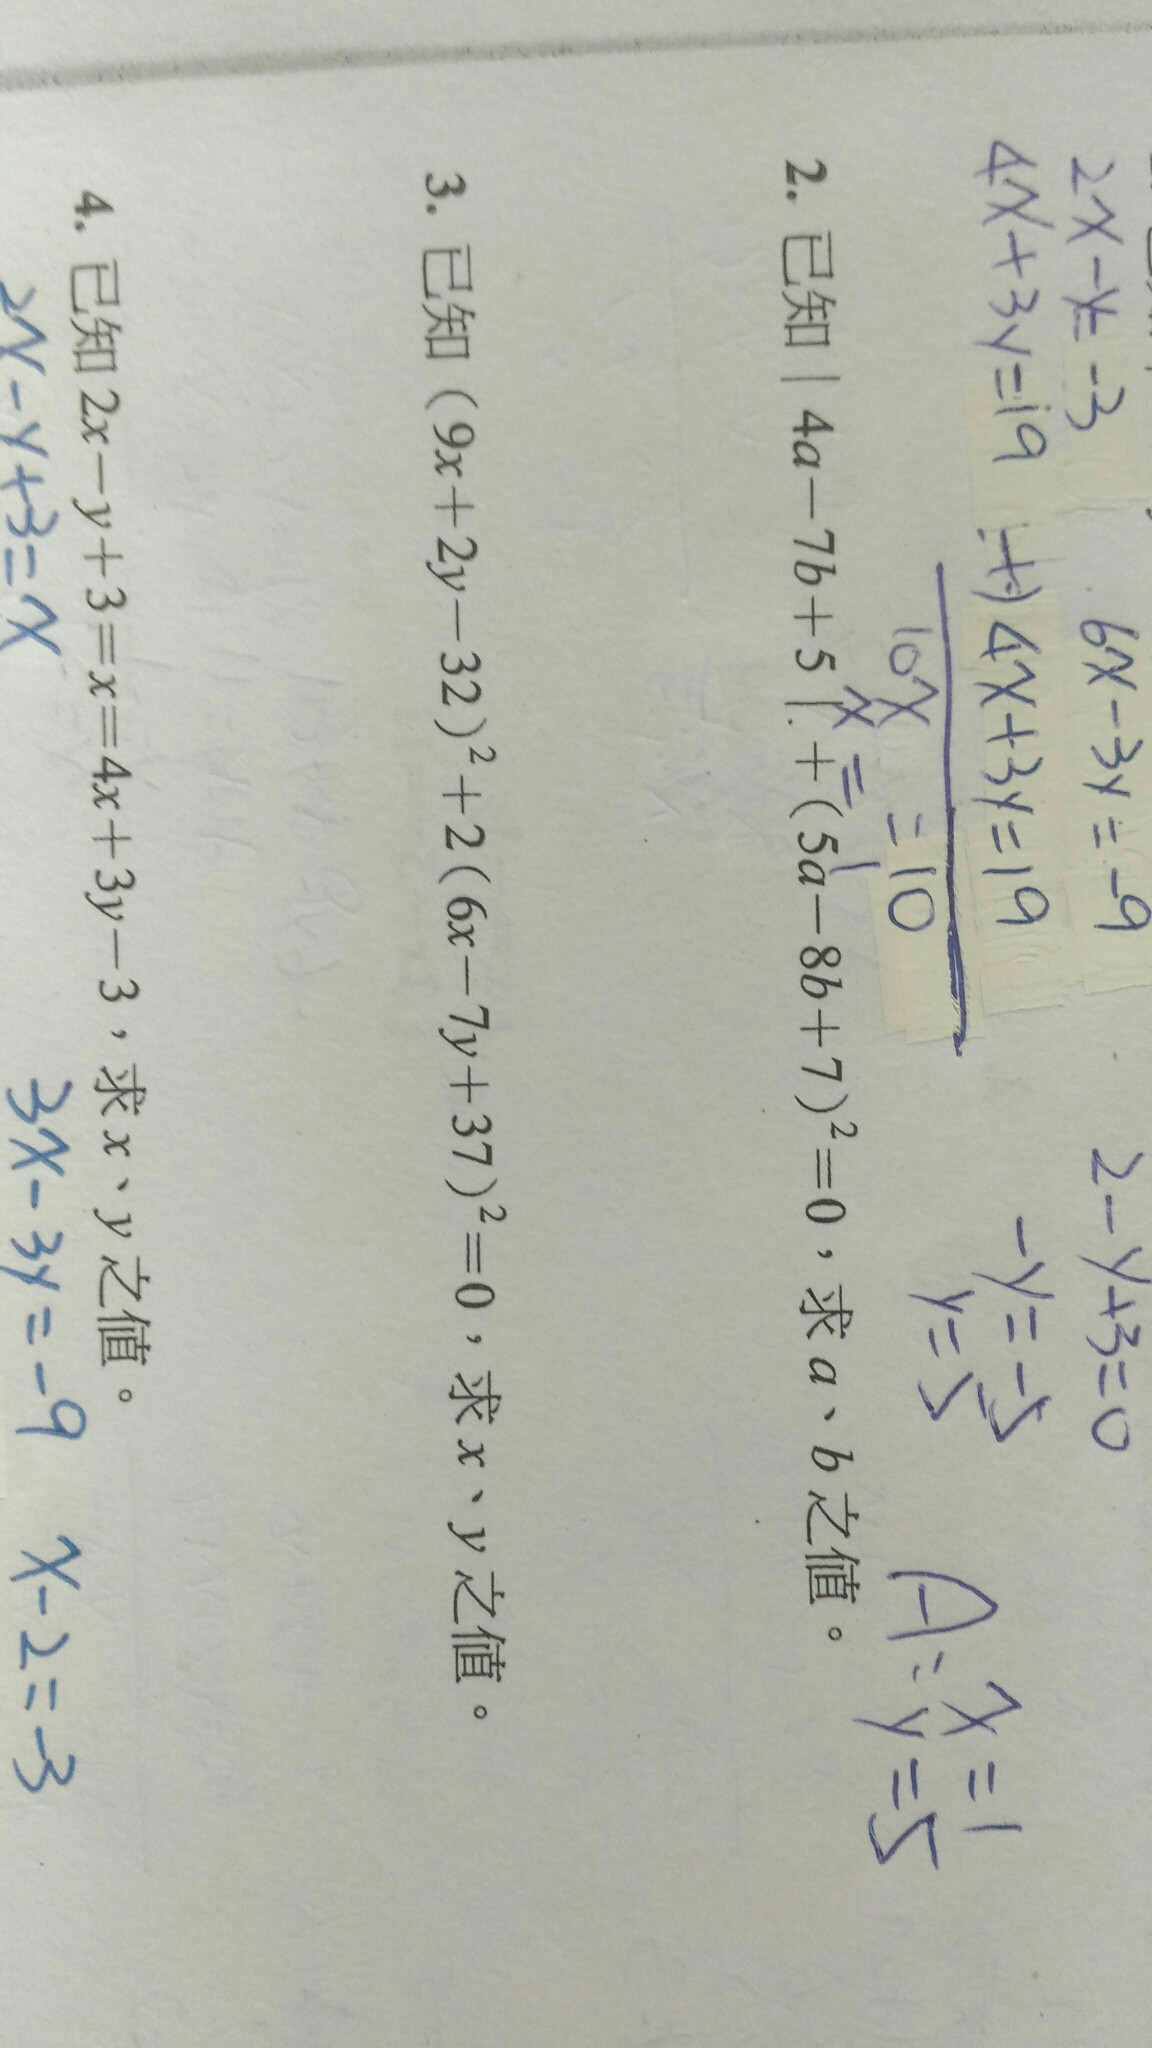 2x-y=-3 6x-3y=-9 2-y+3=0
4x+3y=19 +)4x+3y=19 -y=-5
10x =10 y=5
x=1
A: x=1
y=5
2. 已知|4a-7b+5|+(5a-8b+7)²=0,求a、b之值。
3. 已知(9x+2y-32)²+2(6x-7y+37)²=0,求x、y之值。
4. 已知2x-y+3=x=4x+3y-3,求x、y之值。
2x-y+3=x 3x-3y=-9 x-2=-3